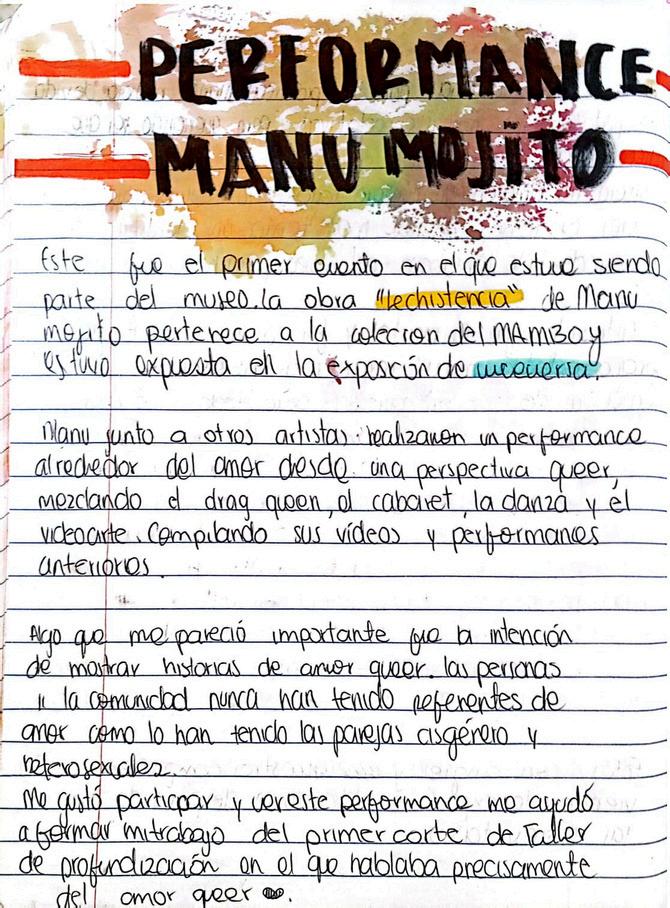 PERFORMANCE
MANU MOJITO
Este fue el primer evento en el que estuve siendo
parte del museo. la obra "lechistencia" de Manu
mojito pertenece a la colecion del MAMBO y
estuvo expuesta en la exposción de uceversa.
Manu junto a otros artistas realizaron un performance
alrededor del amor desde una perspectiva queer,
mezclando el drag queen, el cabaret, la danza y el
videoarte. Compilando sus vídeos y performances
anteriores.
Algo que me pareció importante fue la intención
de mostrar historias de amor queer. las personas
y la comunidad nunca han tenido referentes de
amor como lo han tenido las parejas cisgénero y
heterosexuales.
Me gustó participar y ver este performance me ayudó
a formar mi trabajo del primer corte de Taller
de profundización en el que hablaba precisamente
del amor queer.